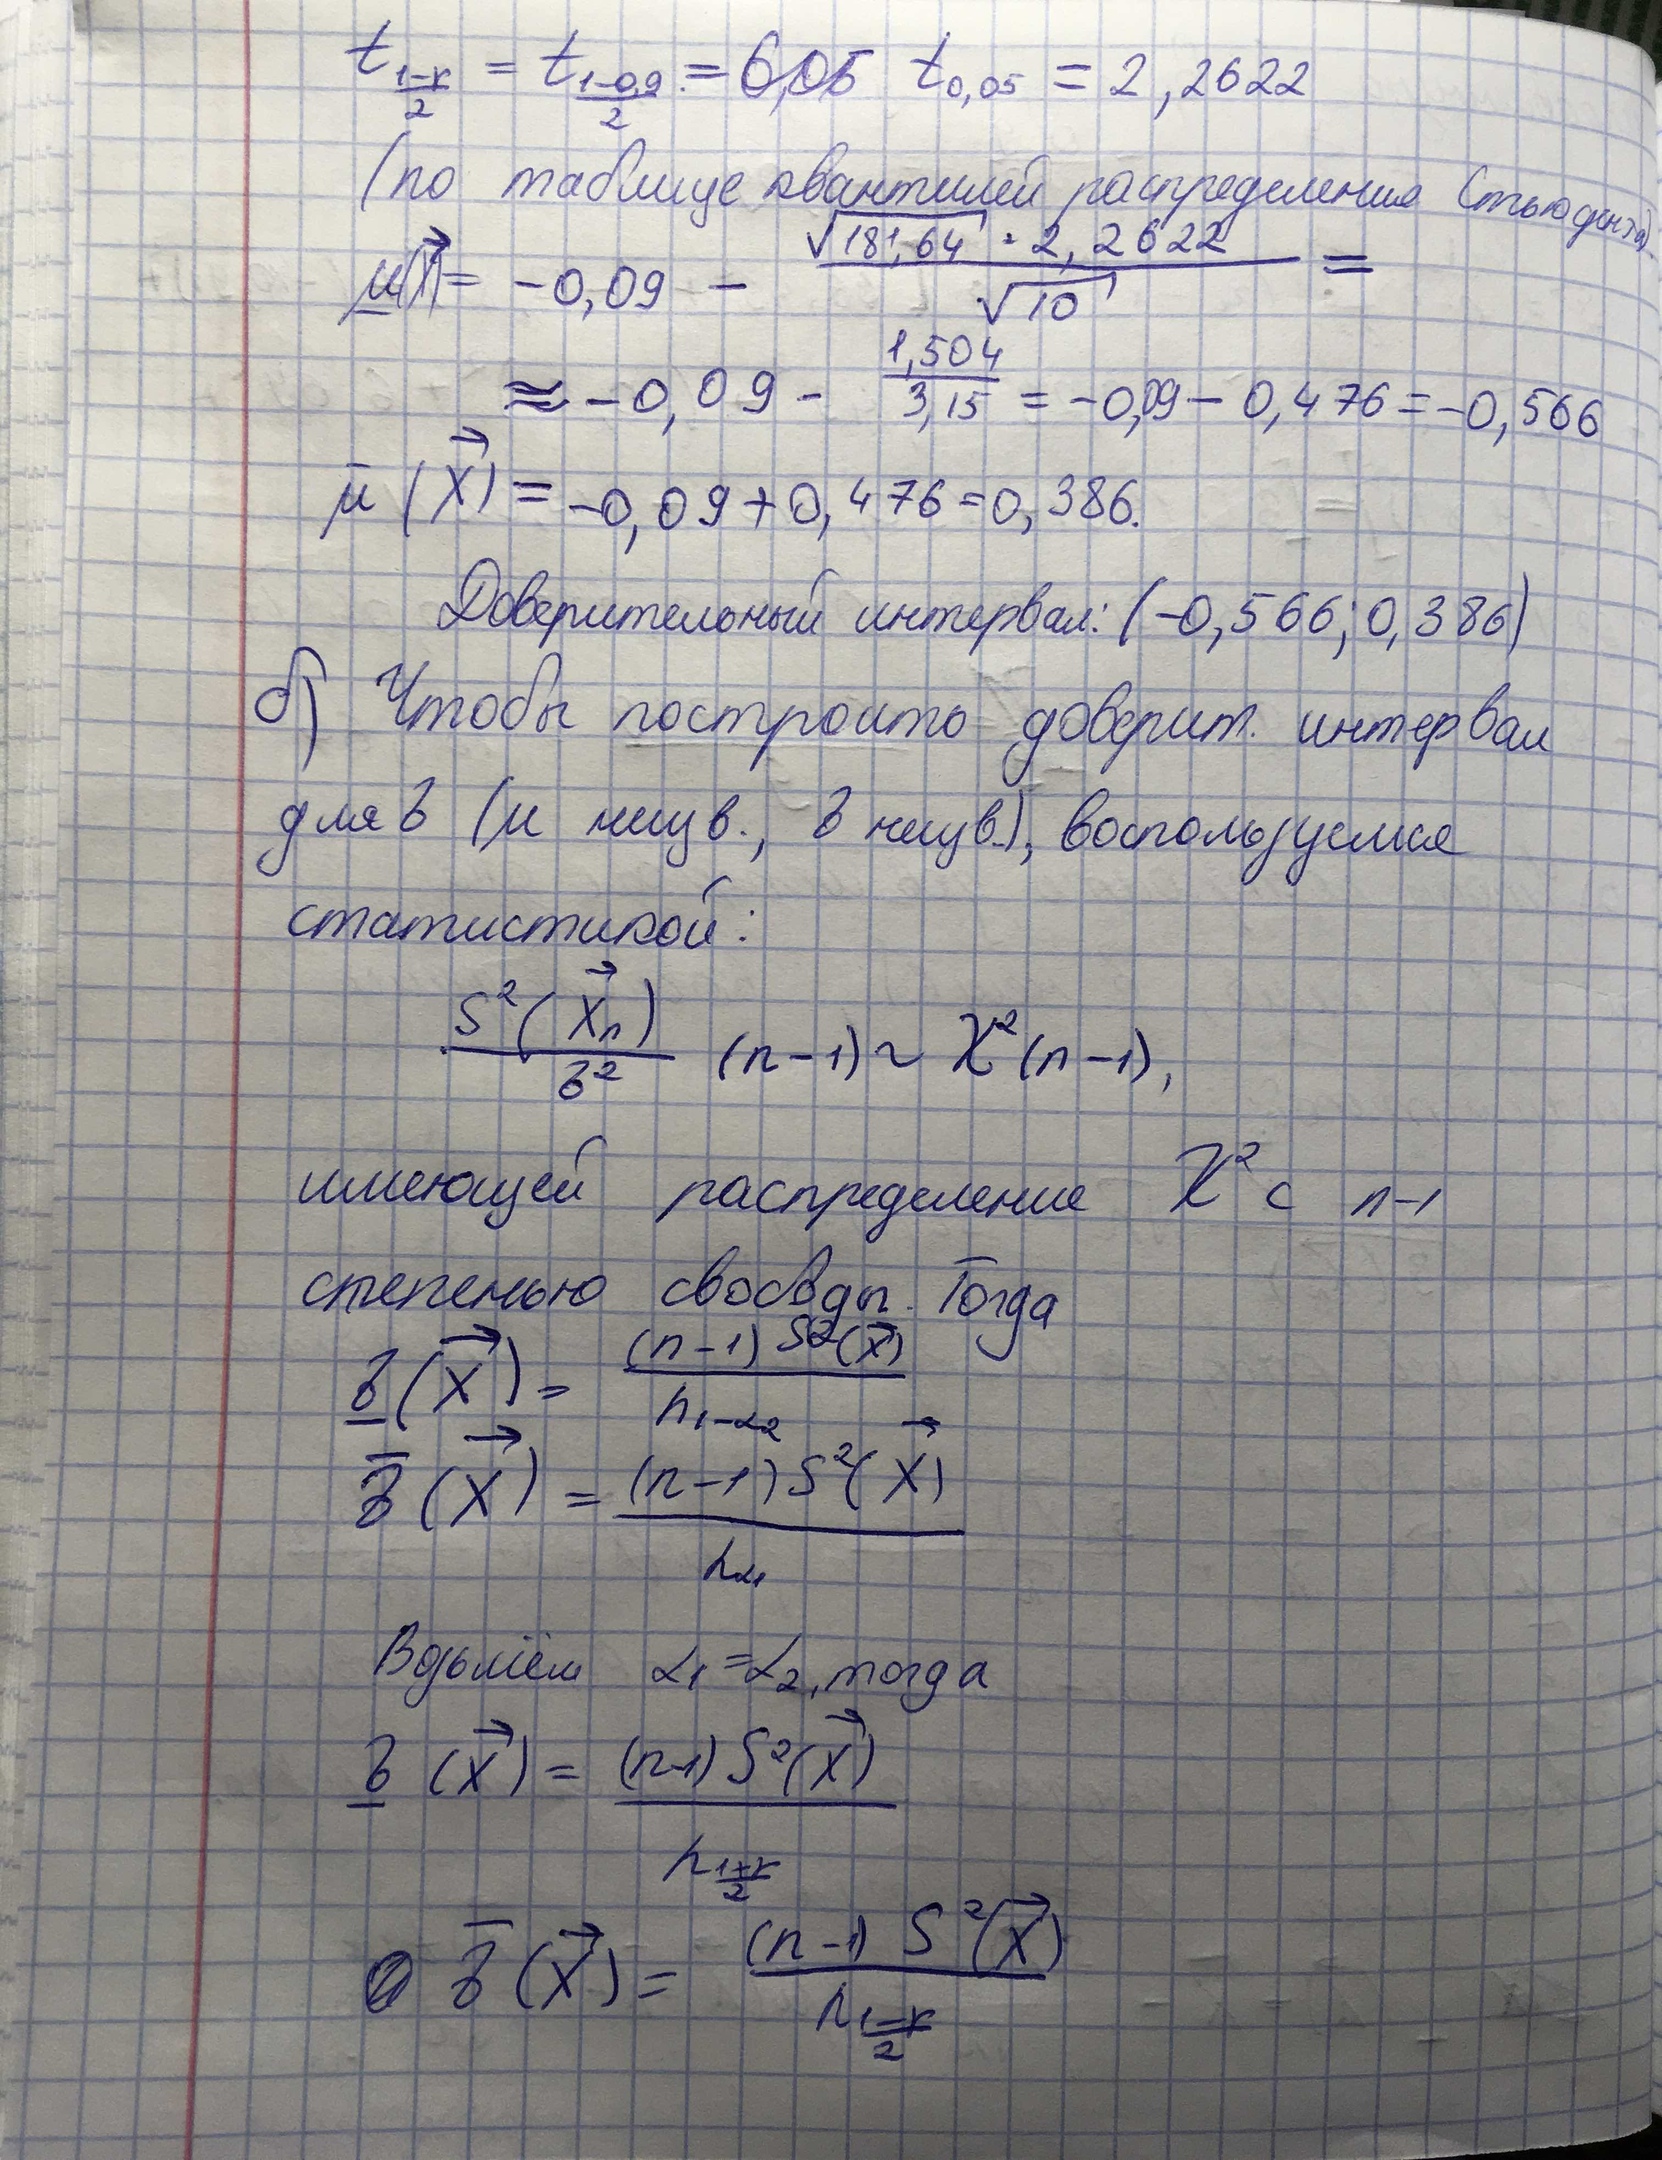 t_{\frac{1-γ}{2}} = t_{\frac{1-0,9}{2}} = 0,05 t_{0,05} = 2,2622
(по таблице квантилей распределения Стьюдента)
\underline{μ}(\vec{X}) = -0,09 - \frac{\sqrt{181,64} · 2,2622}{\sqrt{10}} =
≈ -0,09 - \frac{1,504}{3,15} = -0,09 - 0,476 = -0,566
\bar{μ}(\vec{X}) = -0,09 + 0,476 = 0,386.
Доверительный интервал: (-0,566; 0,386)
б) Чтобы построить доверит. интервал
для σ (μ неизв., σ неизв.), воспользуемся
статистикой:
\frac{S^2(\vec{X}_n)}{σ^2} (n-1) ~ χ^2(n-1),
имеющей распределение χ^2 с n-1
степенью свободы. Тогда
\underline{σ}(\vec{X}) = \frac{(n-1) S^2(\vec{X})}{h_{1-α_2}}
\bar{σ}(\vec{X}) = \frac{(n-1) S^2(\vec{X})}{h_{α_1}}
Возьмём α_1 = α_2, тогда
\underline{σ}(\vec{X}) = \frac{(n-1) S^2(\vec{X})}{h_{\frac{1+γ}{2}}}
\bar{σ}(\vec{X}) = \frac{(n-1) S^2(\vec{X})}{h_{\frac{1-γ}{2}}}